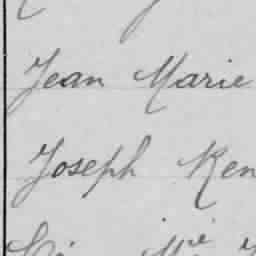 Jean Marie
Joseph Ken